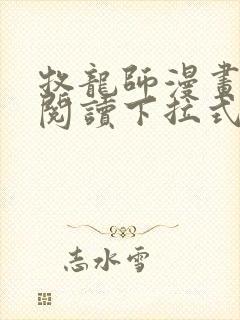 牧龍師漫畫
閱讀下拉式
志水雪